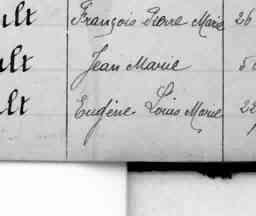 ult François Pierre Marie 26
ult Jean Marie 5
ult Eugène Louis Marie 22